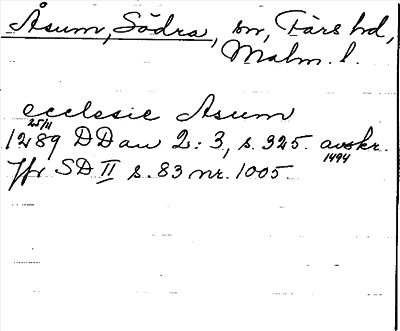 Åsum, Södra, sn, Färs hd,
Malm. l.
ecclesie Asum
25/11
1289 DDan 2:3, s. 325. avskr.
1494
Jfr SD II s. 83 nr. 1005.